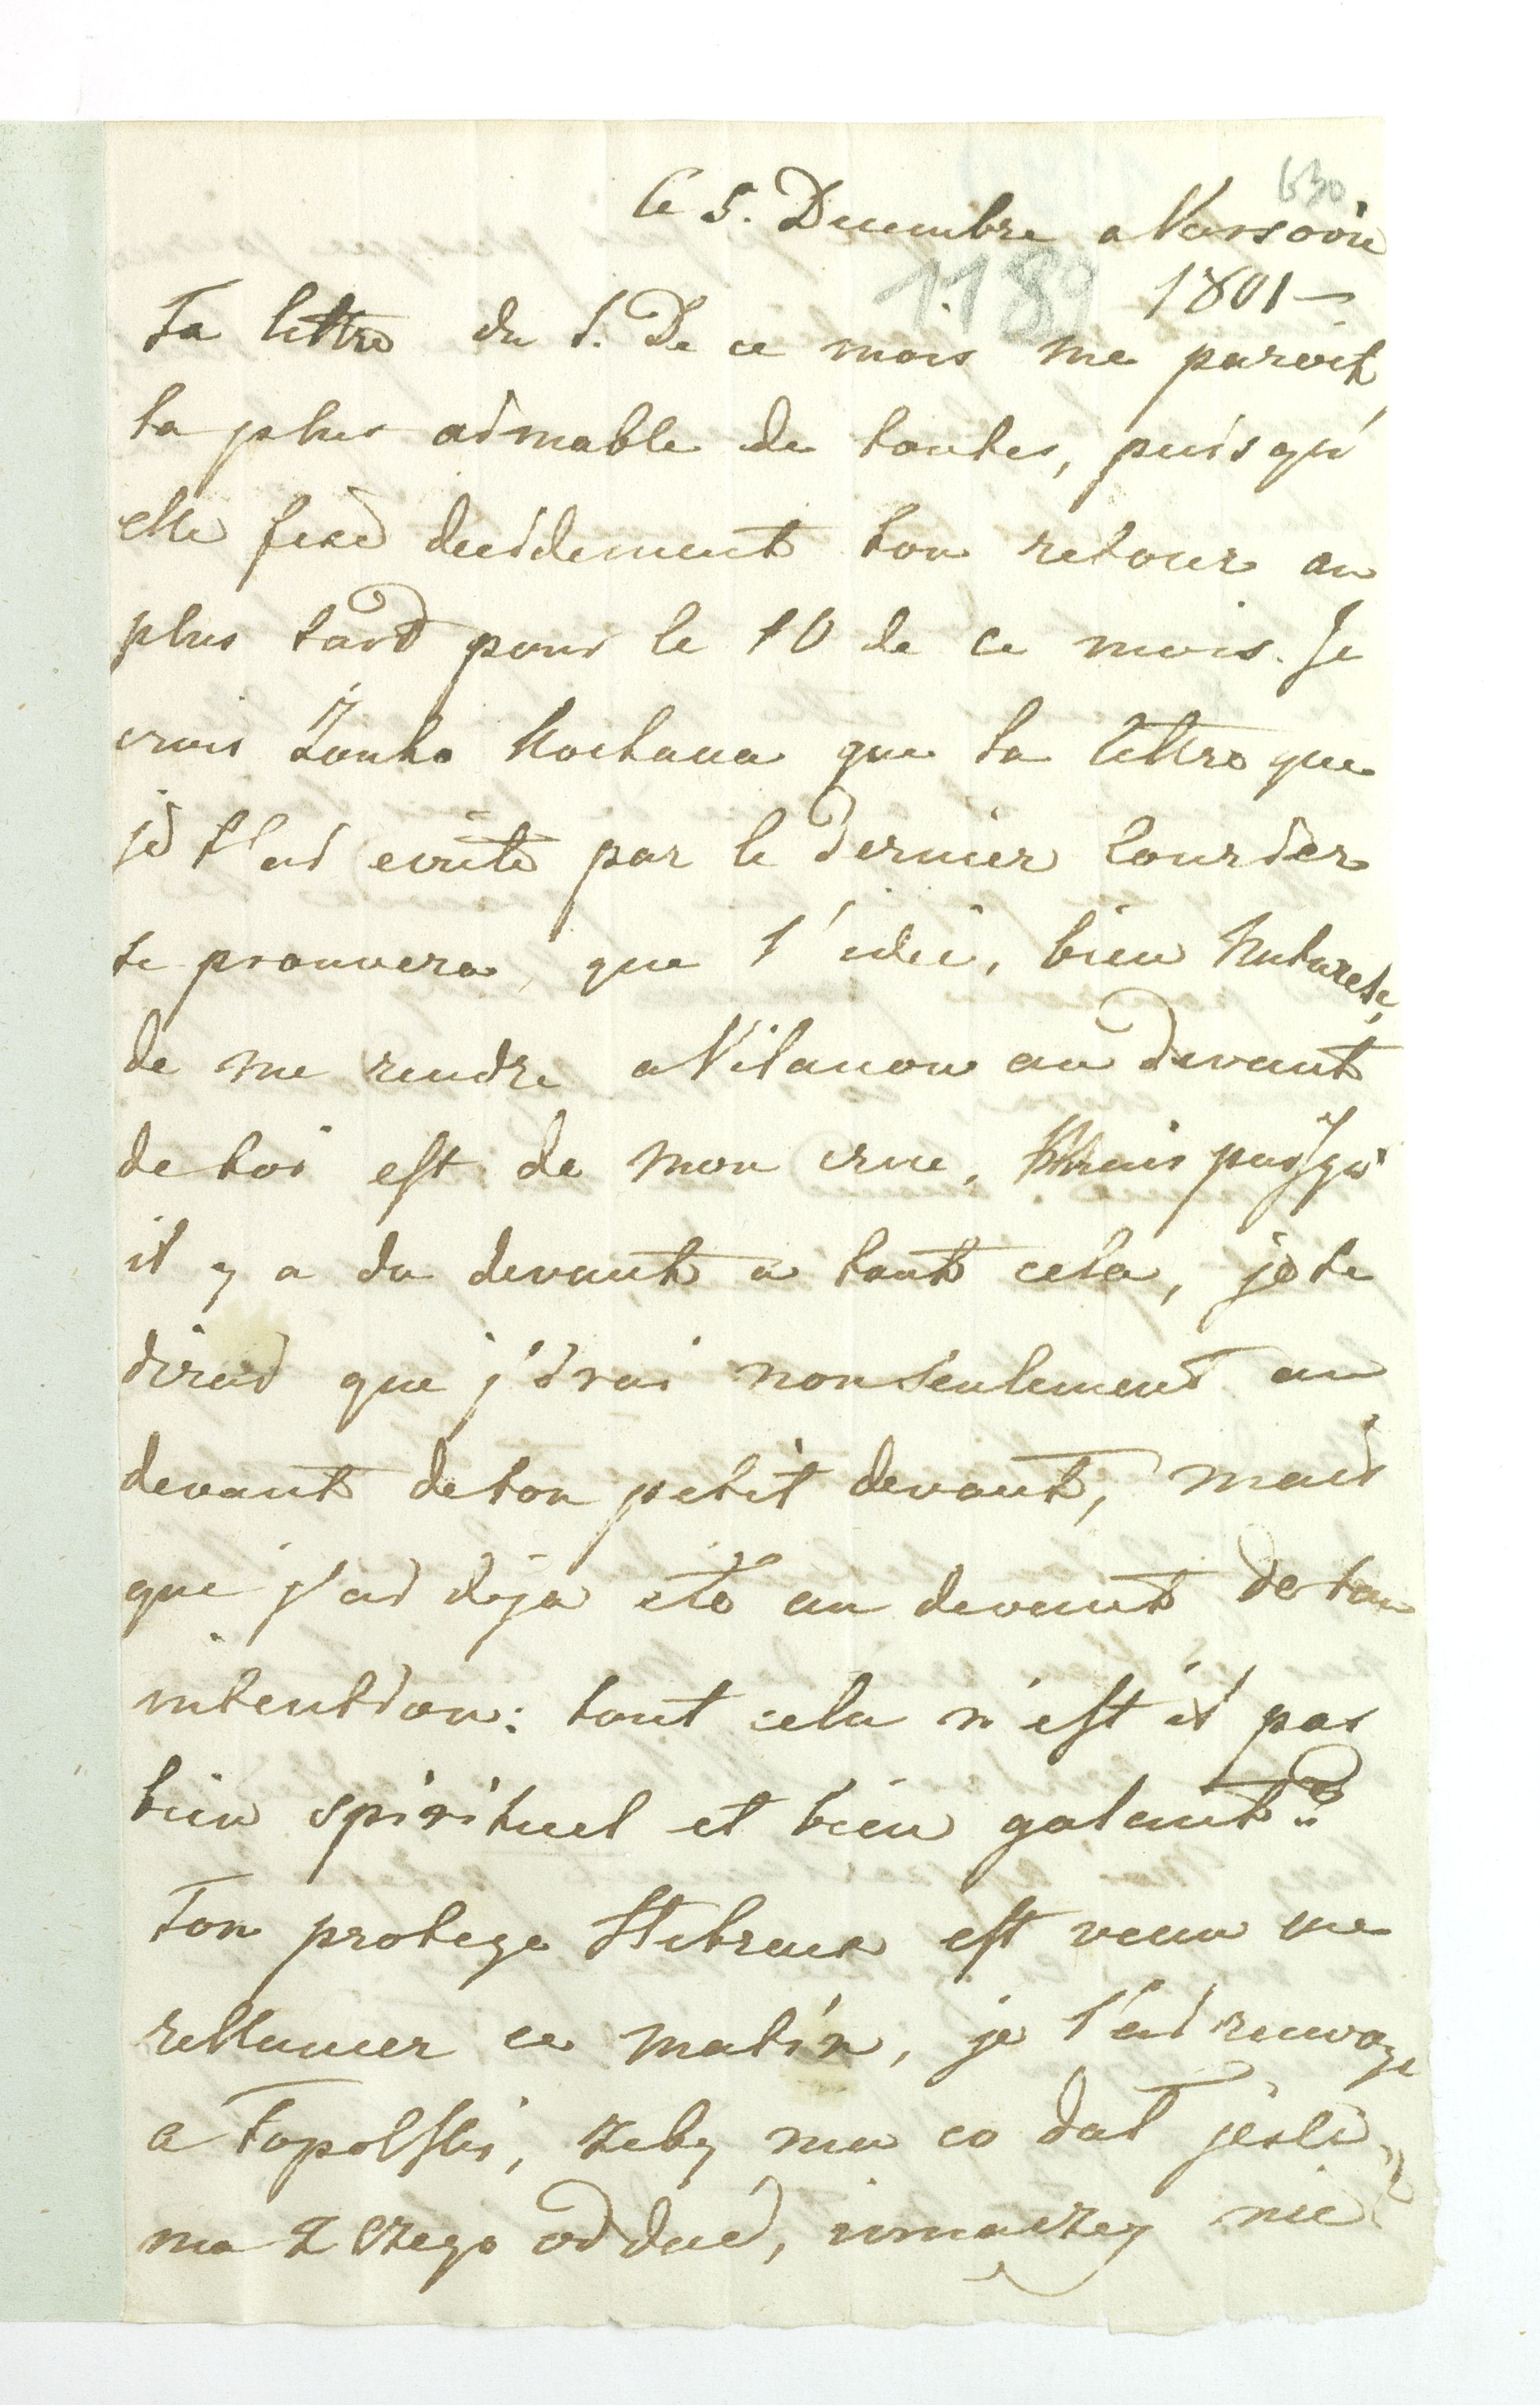 630
Ce 5. Decembre a Varsovie
1180
1801 –
Ta lettre du 1. De ce mois me paroit
la plus aimable de toutes, puisqu'
elle fixe decidement ton retour au
plus tard pour le 10 de ce mois. Je
crois Żonko Kochana que la lettre que
je t'ai ecrite par le dernier Courier
te prouvera, que l'idée, bien
de me rendre a Vilanow au devant
de toi est de mon cru, Mais puisqu'
il y a du devant a tout cela, je te
dirai que j'irai non seulement au
devant de ton petit devant, mais
que j'ai deja eté au devant de ton
intention: tout cela n'est il pas
bien spirituel et bien galant?
Ton protege est venu me
rellancer ce matin, je l'ai renvoye
a Topolski, zeby mu co dał jeśli
ma z czego oddać, inaczey nie